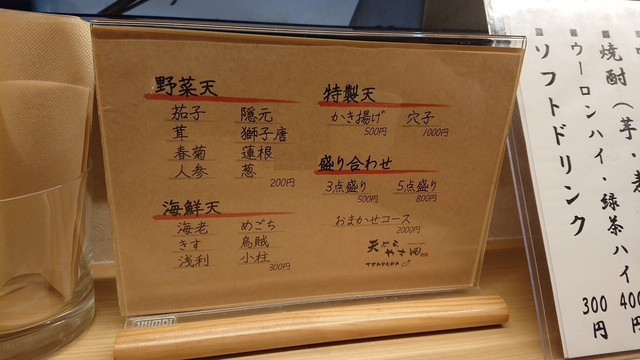 野菜天
茄子 隠元
茸 獅子唐
春菊 蓮根
人参 葱
200円
海鮮天
海老 めごち
きす 烏賊
浅利 小柱
300円
特製天
かき揚げ 穴子
500円 1000円
盛り合わせ
3点盛り 5点盛り
500円 800円
おまかせコース
2000円
天ぷら
やす田
TEMPURA
■ソフトドリンク
300円
■ウーロンハイ・緑茶ハイ
400円
■焼酎(芋・麦
円